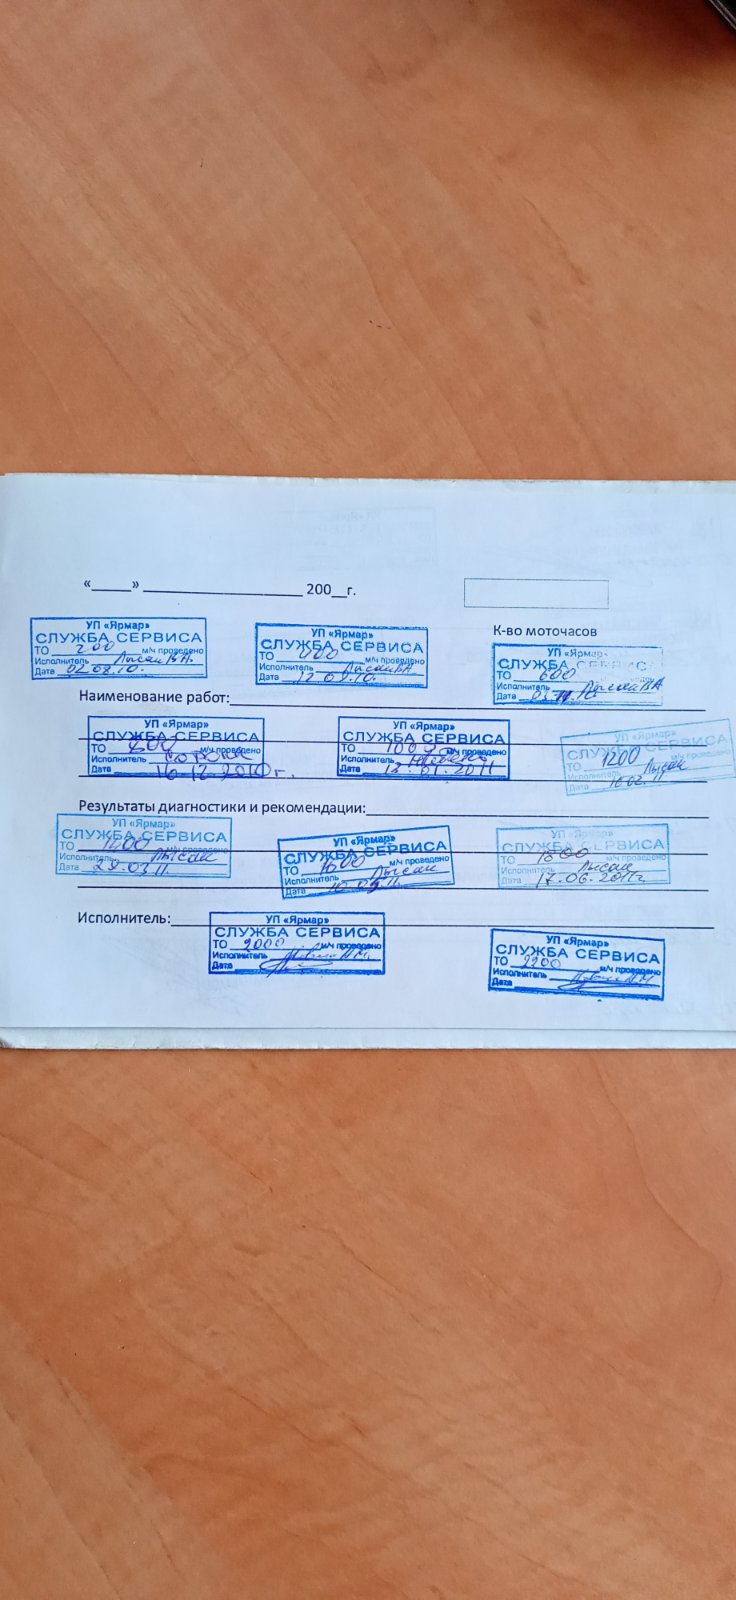 «_____» ____________________ 200__г.
К-во моточасов
УП «Ярмар»
СЛУЖБА СЕРВИСА
ТО 200 м/ч проведено
Исполнитель Лысак В.А.
Дата 02.08.10.
УП «Ярмар»
СЛУЖБА СЕРВИСА
ТО 400 м/ч проведено
Исполнитель Лысак В.А.
Дата 12.09.10.
УП «Ярмар»
СЛУЖБА СЕРВИСА
ТО 600
Исполнитель Лысак В.А
Дата
Наименование работ:
УП «Ярмар»
СЛУЖБА СЕРВИСА
ТО 800 м/ч проведено
Исполнитель
Дата 16.12.2010г.
УП «Ярмар»
СЛУЖБА СЕРВИСА
ТО 1000 м/ч проведено
Исполнитель
Дата 13.01.2011
УП «Ярмар»
СЛУЖБА СЕРВИСА
ТО 1200
Исполнитель Лысак
Дата 16.02.11
Результаты диагностики и рекомендации:
УП «Ярмар»
СЛУЖБА СЕРВИСА
ТО 1400 м/ч проведено
Исполнитель Лысак
Дата 29.03.11
УП «Ярмар»
СЛУЖБА СЕРВИСА
ТО 1600 м/ч проведено
Исполнитель Лысак
Дата
УП «Ярмар»
СЛУЖБА СЕРВИСА
ТО 1800 м/ч проведено
Исполнитель Лысак
Дата 17.06.2011г
Исполнитель:
УП «Ярмар»
СЛУЖБА СЕРВИСА
ТО 2000 м/ч проведено
Исполнитель
Дата
УП «Ярмар»
СЛУЖБА СЕРВИСА
ТО 2200 м/ч проведено
Исполнитель
Дата